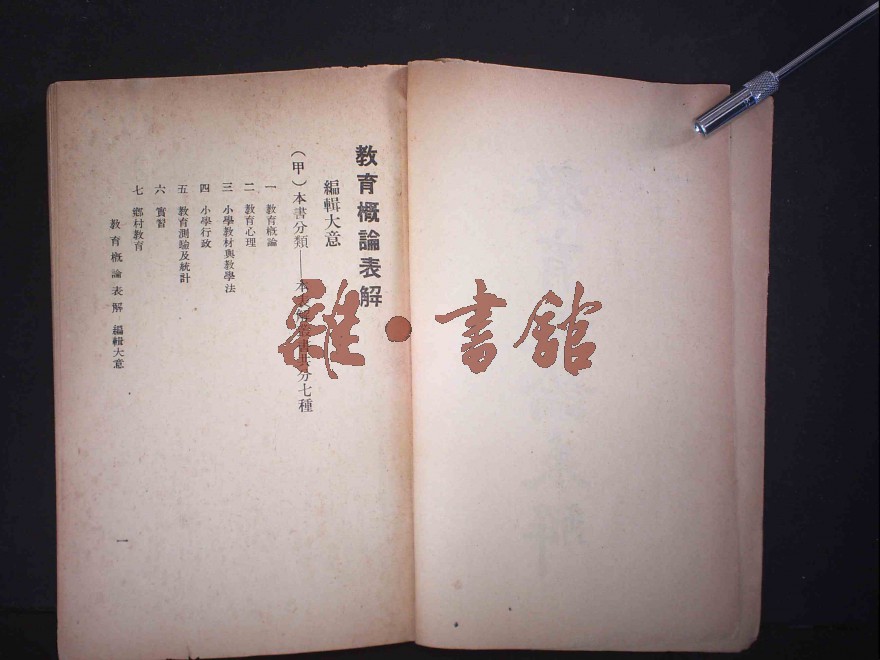 教育概論表解
編輯大意
（甲）本書分類——本表解全書共分七種
一 教育概論
二 教育心理
三 小學教材與教學法
四 小學行政
五 教育測驗及統計
六 實習
七 鄉村教育
教育概論表解 編輯大意
一
雜·書館